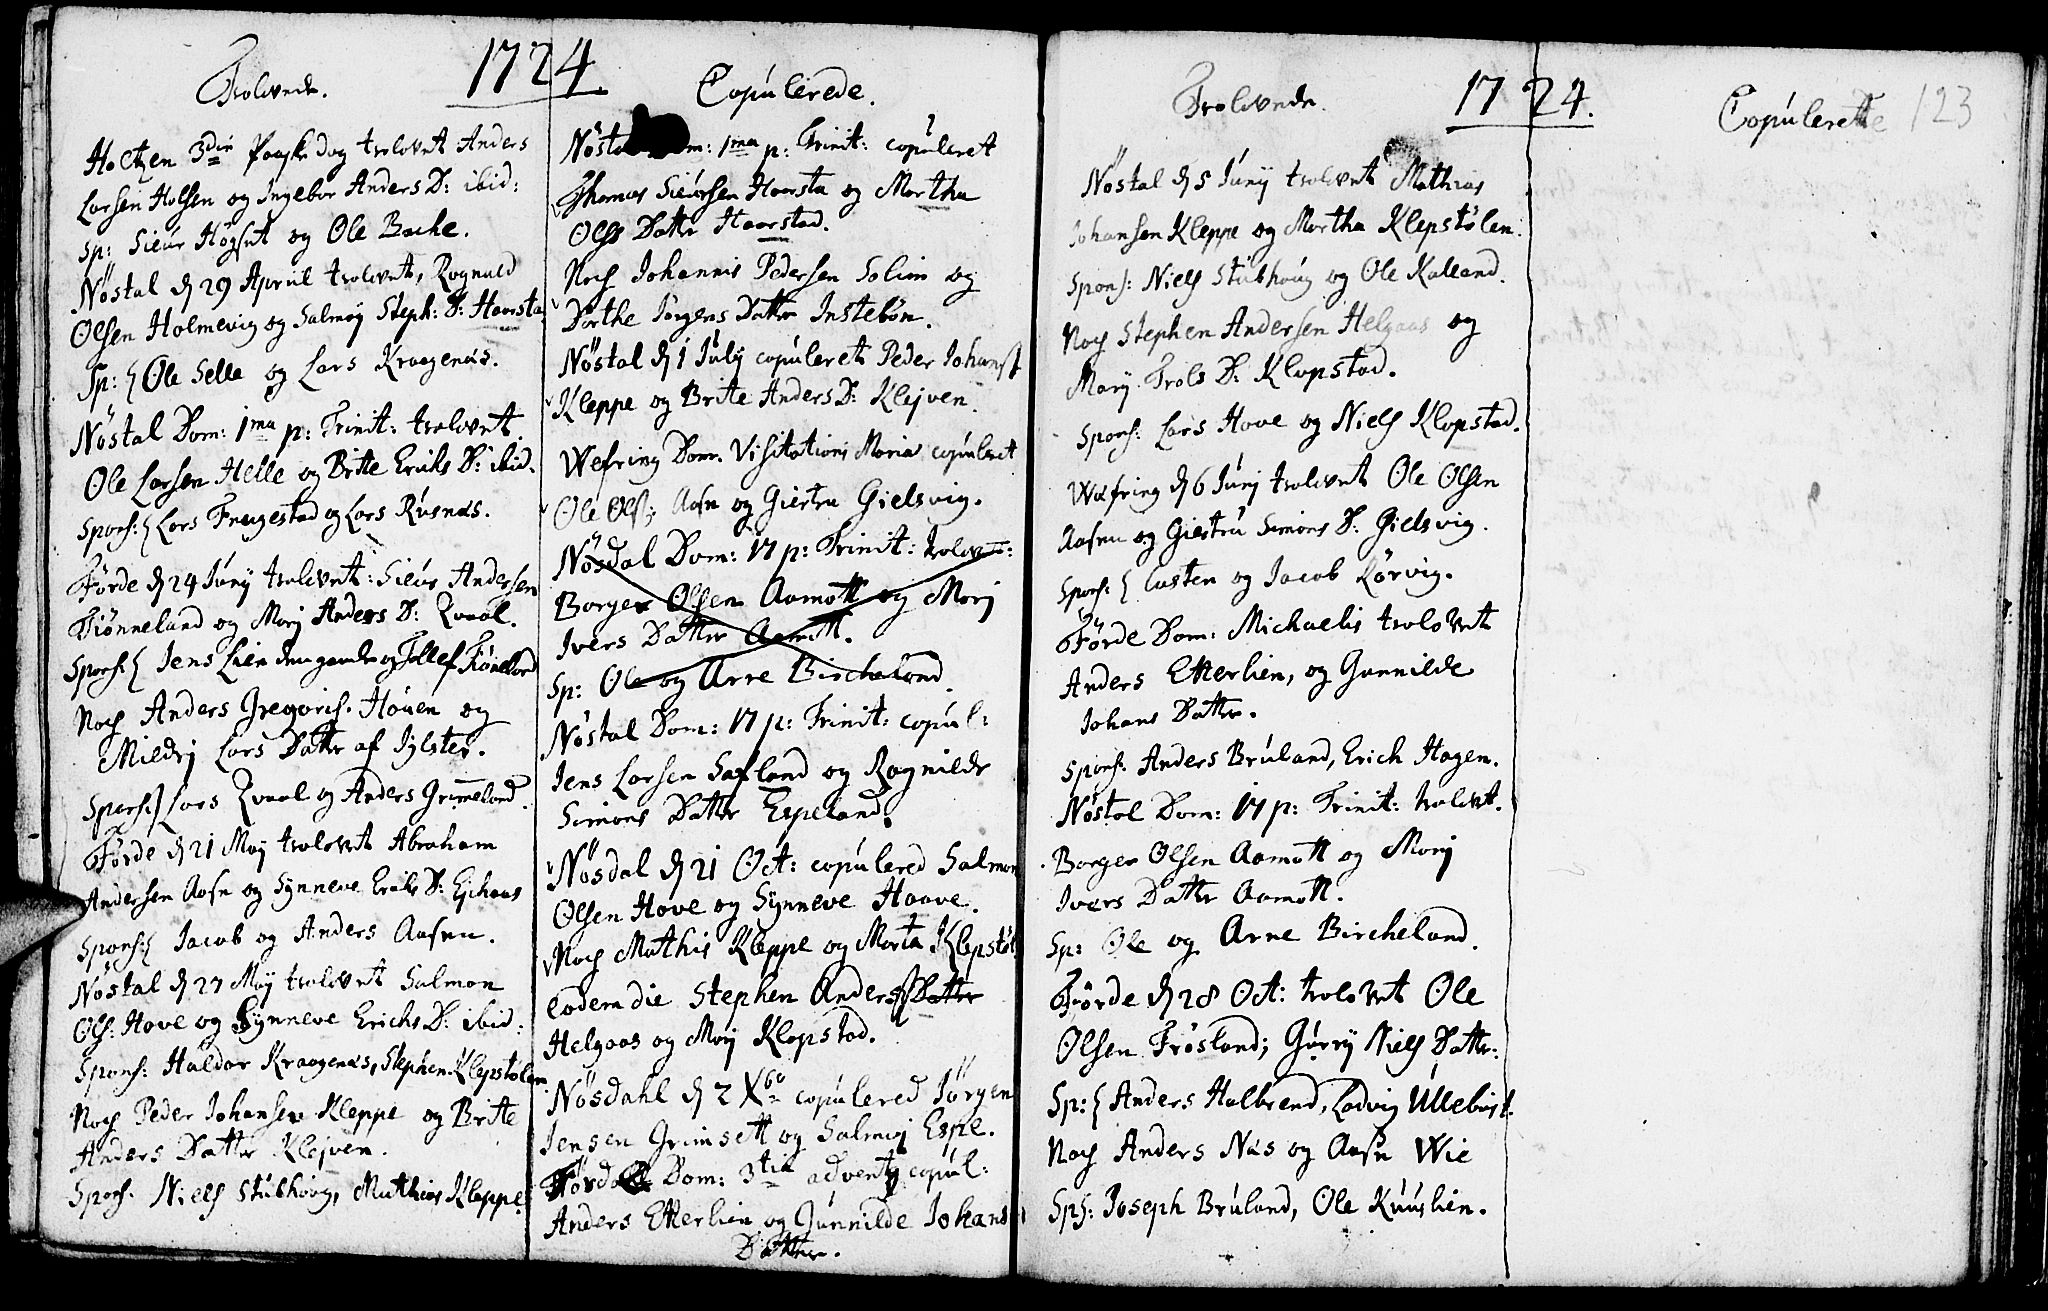 1724
Trolovede.
Holtzen 3die Paaske dag trolovet Anders
Larsen Holsen og Ingebor Anders D: ibid:
sp: Sieur Høgset og Ole Bache.
Nøstal d 29 April trolovet, Rognald
Olsen Holmevig og Salmøy Steph: D: Haarsta
Sp: { Ole Selle og Lars Kraagenæs.
Nøstal Dom: 1ma p: Trinit: trolovet
Ole Larsen Helle og Britte Eriks D: ibid.
Spons: { Lars Frugestad og Lars Rusnæs.
Førde d 24 Junij trolovet: Sieur Andersen
Fiønneland og Marj Anders D: Qvaal.
Spons: { Jens Lien den gamle og Tollef Fiøneland
Noch Anders Gregoris. Houen og
Mildrj Lars Datter af Jylster.
Spons: } Lars Qvaal og Anders Grimeland.
Førde d 21 Maj trolovet Abraham
Andersen Aasn og Synneve Eriks D: Ejkaas
Spons: { Jacob og Anders Aasen.
Nøstal d 27 Maj trolovet Salmon
Ols: Hove og Synneve Erichs D: ibid:
Spons: Haldor Kraagenæs, Stephen Klepstølen
Noch Peder Johansen Kleppe og Britte
Anders Datter Klejven.
Spons. Niels Stubhoug, Mathias Kleppe
Copulerede.
Dom: 1ma p: Trinit: copuleret
Thomas Sieursen Haarsta og Martha
Olss Datter Haarstad.
Noch Johannis Pedersen Solim og
Dorthe Jørgens Datter Instebøn.
Nøstal d 1 July copuleret Peder Johans
Kleppe og Brite Anders D: Klejven.
Wefring Dom. Visitationis Mariæ copuleret
Ole Ols: Aasn og Giertru Gielsvig.
Nøsdal Dom: 17 p: Trinit: trolovet:
Borger Olsen Aamott og Marj
Ivers Datter Aamott.
Sp: Ole og Arne Bircheland
Nøstal Dom: 17 p: Trinit: copul:
Jens Larsen Sæfland og Ragnilde
Simons Datter Espeland.
Nøsdal d 21 Oct: copulered Salmon
Olsen Hove og Synneve Haave.
Noch Mathis Kleppe og Marta Klepstøl
eodem die Stephen Anders Datter
Helgaas og Marj Klopstad.
Nøsdahl d 2 Xbr copulered Jørgen
Jensen Grimsett og Salmoj Espe.
Førde Dom: 3tia advent copul:
Anders Etterlien og Gunnilde Johans
Datter.
1724.
Trolovede.
Nøstal d 5 Junij trolovet Mathias
Johansen Kleppe og Martha Klepstølen.
Spons: Niels Stubhoug og Ole Kalland.
Noch Stephen Andersen Helgaas og
Marij Trols D: Klopstad.
Spons: Lars Hove og Niels Klopstad.
Wæfring d 6 Junij trolovet Ole Olsen
Aasen og Giertru Simons D: Gielsvig.
Spons: { Casten og Jacob Rørvig.
Førde Dom: Michaelis trolovet
Anders Etterlien, og Gunnilde
Johans Datter.
Spons. Anders Bruland, Erich Hagen.
Nøstal Dom: 17 p: Trinit: trolovt.
Borger Olsen Aamott og Marij
Ivers Datter Aamott.
Sp: Ole og Arne Bircheland.
Førde d 28 Oct: trolovet Ole
Olsen Frøsland; Gurrij Niels Datter:
Sp: { Anders Halbrend, Ladvig Ullebust.
Noch Anders Næs og Aasn Wie
Sps: Joseph Bruland, Ole Kuuslien.
Copulerette 123